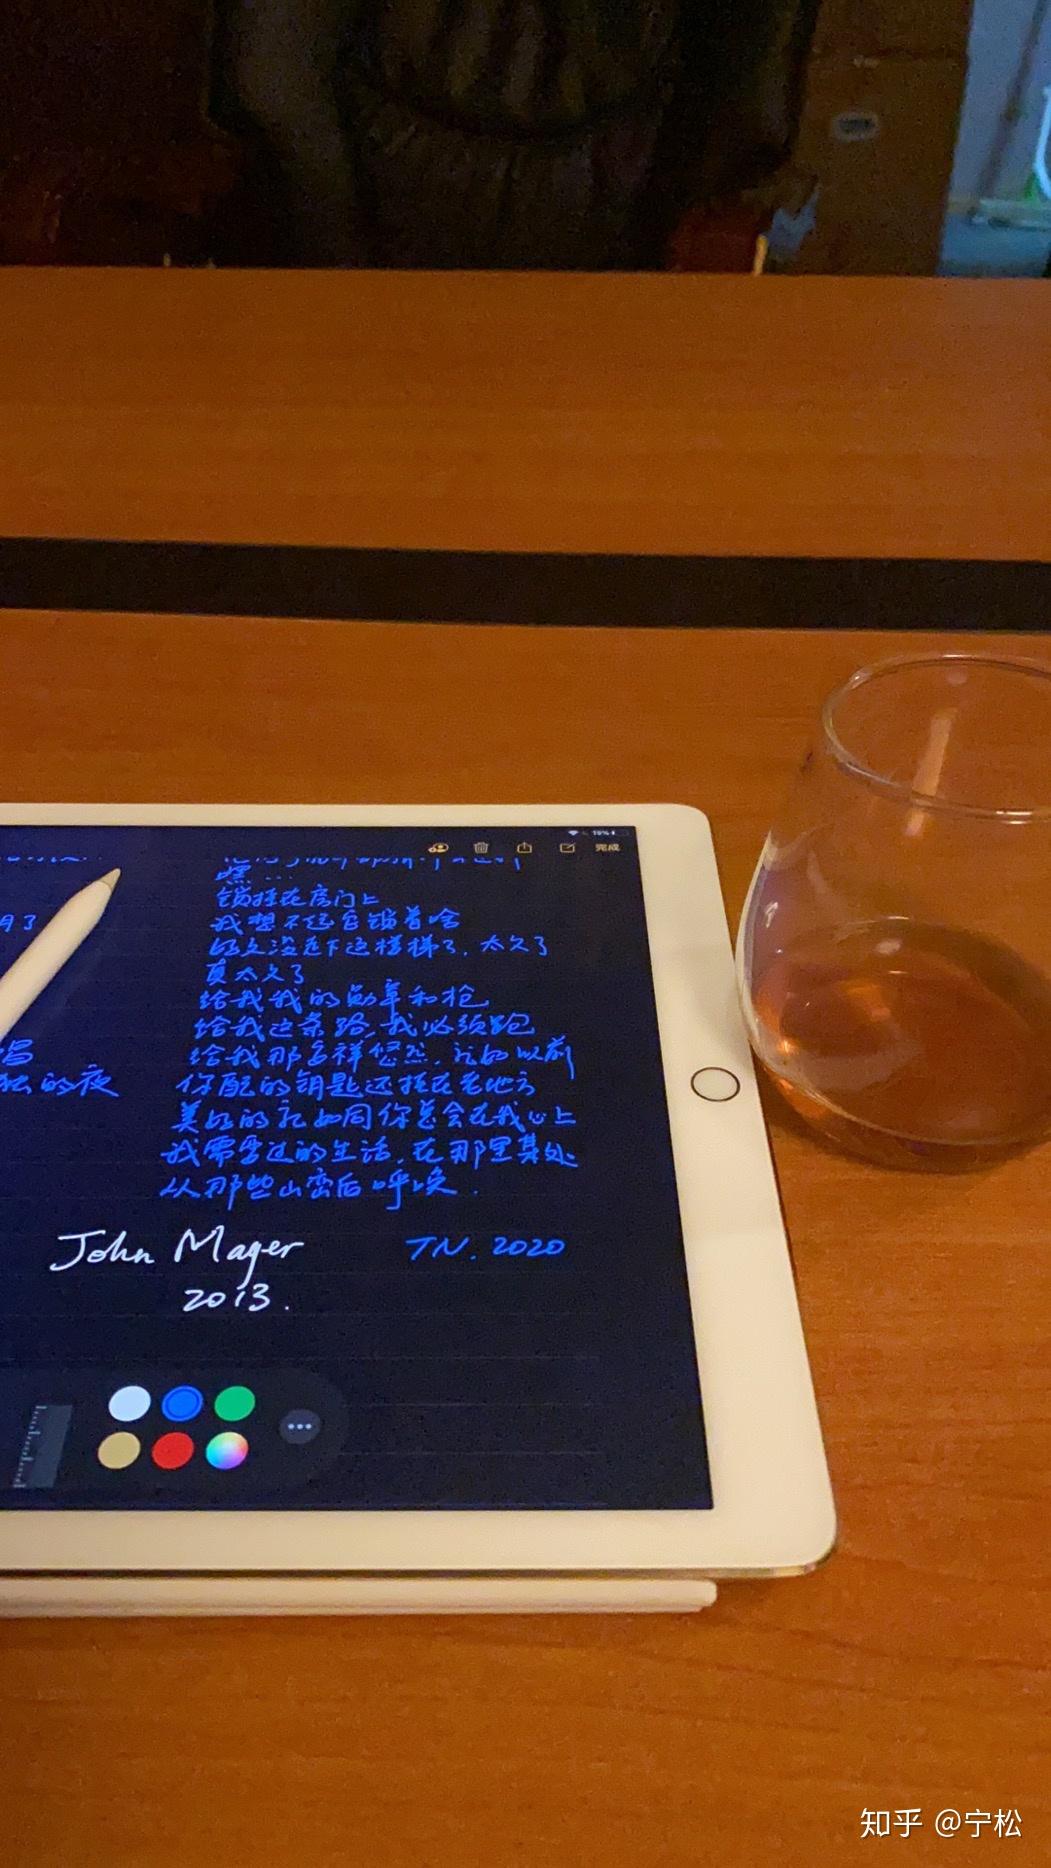 完成
嘿...
锁挂在房门上
我想不起自锁着啥
好久没定下这模样了，太久了
真太久了
给我我的勋章和枪
给我这条路，我必须跑
给我那多祥悠然，礼如以前
你配的钥匙还挂在老地方
美好的礼如同你总会在我心上
我需要过的生活，在那里某处
从那些山峦后呼唤.
月了
唱
独的夜
John Mayer
2013.
TN. 2020
知乎 @宁松